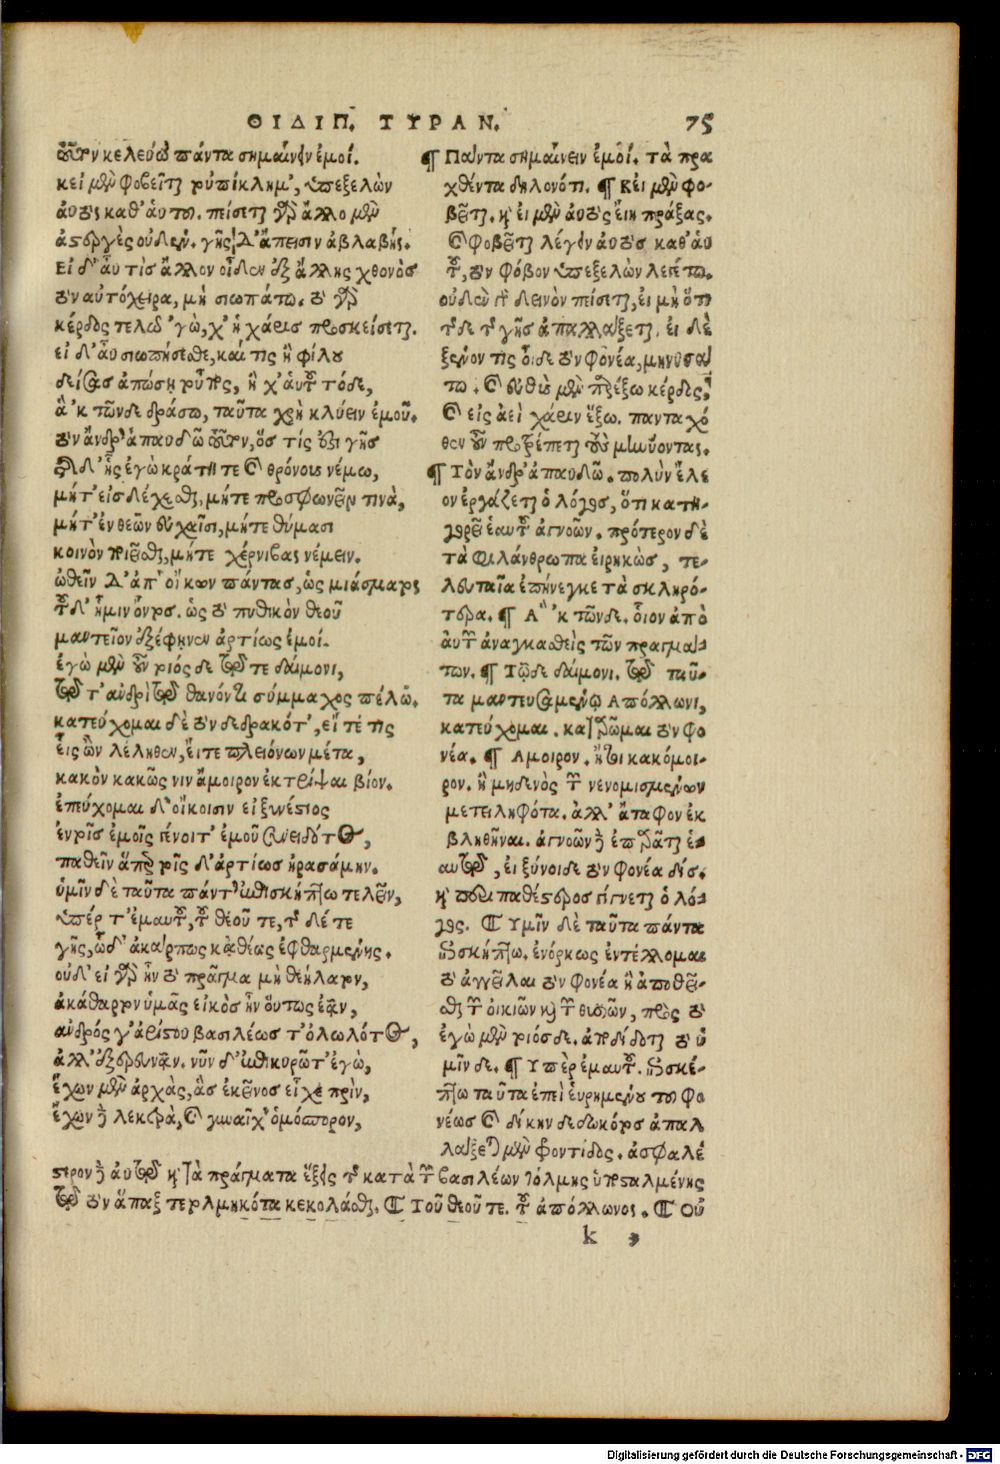 ΟΙΔΙΠ. ΤΥΡΑΝ. 75
τοῦτον κελεύω πάντα σημαίνειν ἐμοί.
κεἰ μὲν φοβεῖται τοὐπίκλημ', ὑπεξελὼν
αὐτὸς καθ' αὑτοῦ. πείσεται γὰρ ἄλλο μὲν
ἀστεργὲς οὐδέν. γῆς δ' ἄπεισιν ἀβλαβής.
Εἰ δ' αὖ τὶς ἄλλον οἶδεν ἐξ ἄλλης χθονὸς
τὸν αὐτόχειρα, μὴ σιωπάτω. τὸ γὰρ
κέρδος τελῶ 'γὼ, χ' ἡ χάρις προσκείσεται.
εἰ δ' αὖ σιωπήσεσθε, καί τις ἢ φίλου
δείσας ἀπώσῃ τοὖπος, ἢ χ' αὑτοῦ τόδε,
ἃ 'κ τῶνδε δράσω, ταῦτα χρὴ κλύειν ἐμοῦ.
τὸν ἄνδρ' ἀπαυδῶ τοῦτον, ὅς τίς ἐστι γῆς
τῆσδ' ἧς ἐγὼ κράτη τε καὶ θρόνους νέμω,
μήτ' εἰσδέχεσθαι, μήτε προσφωνεῖν τινὰ,
μήτ' ἐν θεῶν εὐχαῖσι, μήτε θύμασι
κοινὸν ποιεῖσθαι, μήτε χέρνιβας νέμειν.
ὠθεῖν δ' ἀπ' οἴκων πάντας, ὡς μιάσματος
τοῦδ' ἡμιν ὄντος. ὡς τὸ πυθικὸν θεοῦ
μαντεῖον ἐξέφηνεν ἀρτίως ἐμοί.
ἐγὼ μὲν οὖν τοιόσδε τῷ τε δαίμονι,
τῷ τ' ἀνδρὶ τῷ θανόντι σύμμαχος πέλω.
κατεύχομαι δὲ τὸν δεδρακότ', εἴ τέ τις
εἷς ὢν λέληθεν, εἴτε πλειόνων μέτα,
κακὸν κακῶς νιν ἄμοιρον ἐκτρίψαι βίον.
ἐπεύχομαι δ' οἴκοισιν εἰ ξυνέστιος
ἐν τοῖς ἐμοῖς γένοιτ' ἐμοῦ συνειδότος,
παθεῖν ἅπερ τοῖς δ' ἀρτίως ἠρασάμην.
ὑμῖν δὲ ταῦτα πάντ' ἐπισκήπτω τελεῖν,
ὑπέρ τ' ἐμαυτοῦ, τοῦ θεοῦ τε, τῆς δέ τε
γῆς, ὧδ' ἀκάρπως κἀθέως ἐφθαρμένης.
οὐδ' εἰ γὰρ ἦν τὸ πρᾶγμα μὴ θεήλατον,
ἀκάθαρτον ὑμᾶς εἰκὸς ἦν οὕτως ἐᾶν,
ἀνδρός γ' ἀρίστου βασιλέως τ' ὀλωλότος,
ἀλλ' ἐξερευνᾶν. νῦν δ' ἐπικυρῶτ' ἐγὼ,
ἔχων μὲν ἀρχὰς, ἃς ἐκεῖνος εἶχε πρὶν,
ἔχων δὲ λέκτρα, καὶ γυναῖχ' ὁμόσπορον,
¶ Πάντα σημαίνειν ἐμοί. τὰ πρα
χθέντα δηλονότι. ¶ Κεἰ μὲν φο-
βεῖται. καὶ εἰ μὲν αὐτὸς εἴη πράξας.
καὶ φοβεῖται λέγειν αὐτὸς καθ' αὑ
τοῦ, τὸν φόβον ὑπεξελὼν λεγέτω.
οὐδὲν γὰρ δεινὸν πείσεται, εἰ μὴ ὅτι
τῆσδε τῆς γῆς ἀπαλλάξεται. εἰ δὲ
ξένον τις οἶδε τὸν φονέα, μηνυσά
τω. καὶ εὐθὺς μὲν παρέξω κέρδος,
καὶ εἰς ἀεὶ χάριν ἕξω. πανταχό
θεν οὖν προτρέπεται τοὺς μηνύοντας.
¶ Τὸν ἄνδρ' ἀπαυδῶ. πολὺν ἔλε
ον ἐργάζεται ὁ λόγος, ὅτι κατη-
γορεῖ ἑαυτοῦ ἀγνοῶν. πρότερον δὲ
τὰ φιλάνθρωπα εἰρηκὼς, τε-
λευταῖα ἐπήνεγκε τὰ σκληρό-
τερα. ¶ Ἃ 'κ τῶνδε. οἷον ἀπὸ
αὐτῶν ἀναγκασθεὶς τῶν πραγμά-
των. ¶ Τῷδε δαίμονι. τῷ ταῦ-
τα μαντευσαμένῳ Ἀπόλλωνι,
κατεύχομαι. καταρῶμαι τὸν φο
νέα. ¶ Ἄμοιρον. ἤτοι κακόμοι-
ρον. ἢ μηδενὸς τῶν νενομισμένων
μετειληφότα. ἀλλ' ἄταφον ἐκ
βληθῆναι. ἀγνοῶν δὲ ἐπαρᾶται ἑ-
αυτῷ, εἰ ξύνοιδε τὸν φονέα ὅς.
καὶ περιπαθέστερος γίγνεται ὁ λό-
γος. ¶ Ὑμῖν δὲ ταῦτα πάντα
ἐπισκήπτω. ἐνόρκως ἐντέλλομαι
τὸ ἀγγεῖλαι τὸν φονέα ἢ ἀπωθεῖ-
σθαι τῶν οἰκιῶν καὶ τῶν θυσιῶν, πρὸς τὸ
ἐγὼ μὲν τοιόσδε. ἀποδίδοται τὸ ὑ
μῖν δε. ¶ Ὑπὲρ ἐμαυτοῦ. ἐπισκή-
πτω ταῦτα ἐπὶ εὑρημένου τοῦ φο
νέως καὶ δίκην δεδωκότος ἀπαλ
λάξεσθαι μὲν φροντίδος. ἀσφαλέ
στερον δὲ αὐτῷ καὶ τὰ πράγματα ἕξειν τῆς κατὰ τῶν βασιλέων τόλμης ὑπεσταλμένης
τῷ τὸν ἅπαξ τετολμηκότα κεκολάσθαι. ¶ Τοῦ θεοῦ τε. τοῦ ἀπόλλωνος. ¶ Οὐ
k
Digitalisierung gefördert durch die Deutsche Forschungsgemeinschaft - DFG